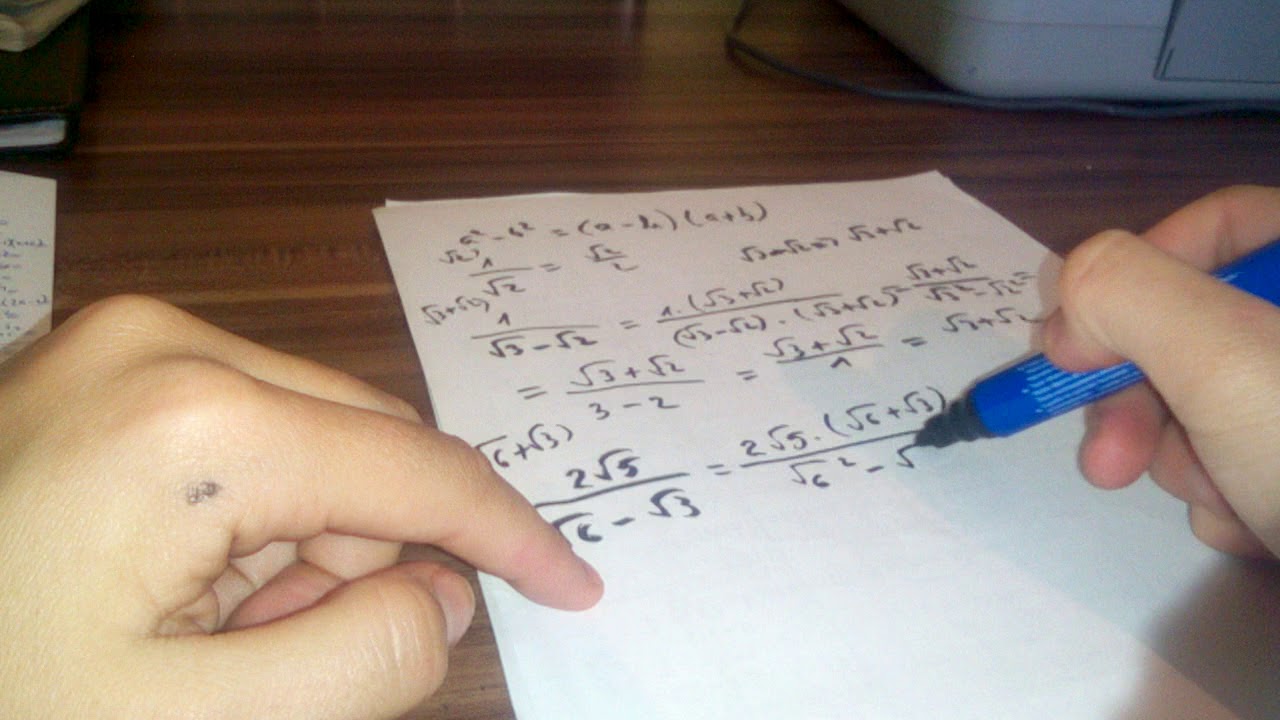 a² - b² = (a - b)(a + b)
√2) 1/√2 = √2/2 √3 - √2 => √3 + √2
√3+√2) 1/(√3 - √2) = 1·(√3+√2)/((√3-√2)·(√3+√2)) = (√3+√2)/(√3² - √2²) =
= (√3 + √2)/(3 - 2) = (√3 + √2)/1 = √3 + √2
√6+√3) 2√5/(√6 - √3) = 2√5·(√6+√3)/(√6² - √